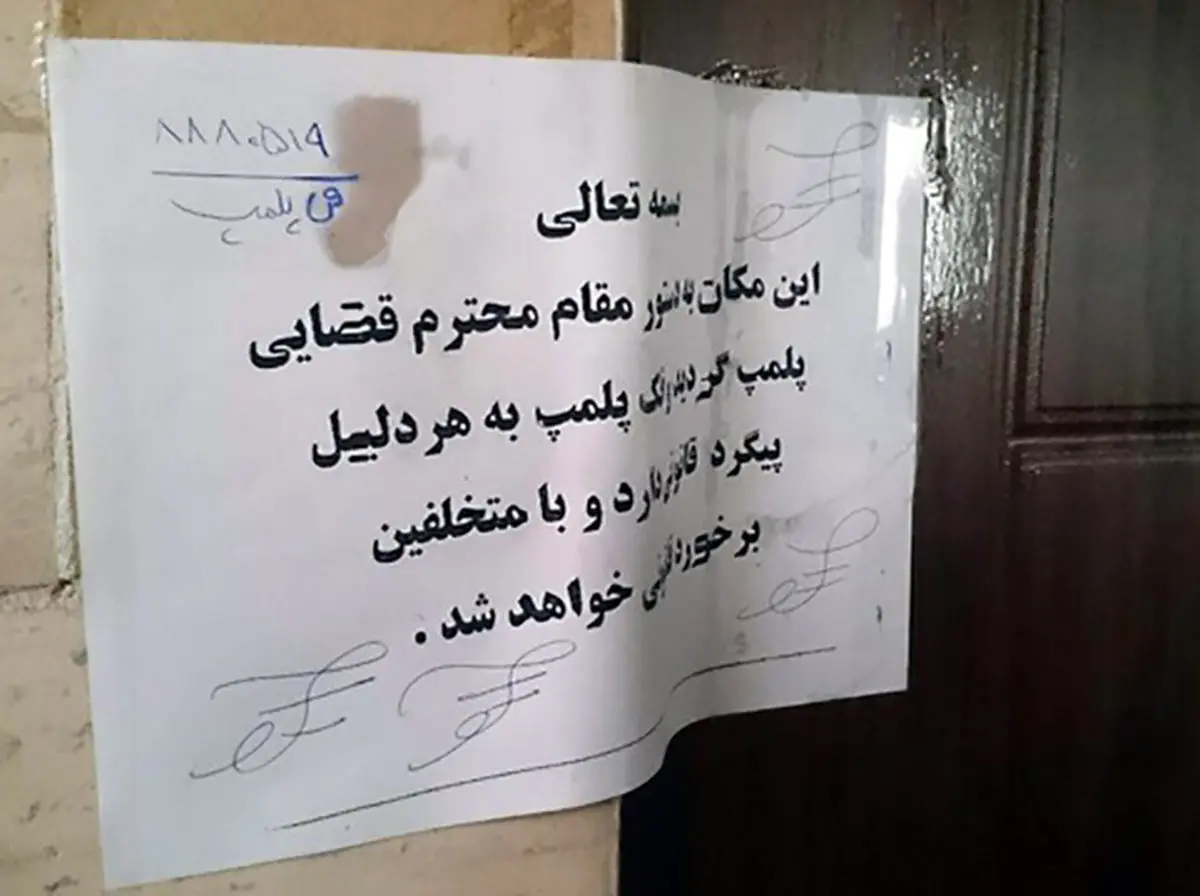 ۸۸۸۰۵۱۹
پلمپ
بسمه تعالی
این مکان به دستور مقام محترم قضایی
پلمپ گردید فک پلمپ به هر دلیل
پیگرد قانونی دارد و با متخلفین
برخورد قانونی خواهد شد .